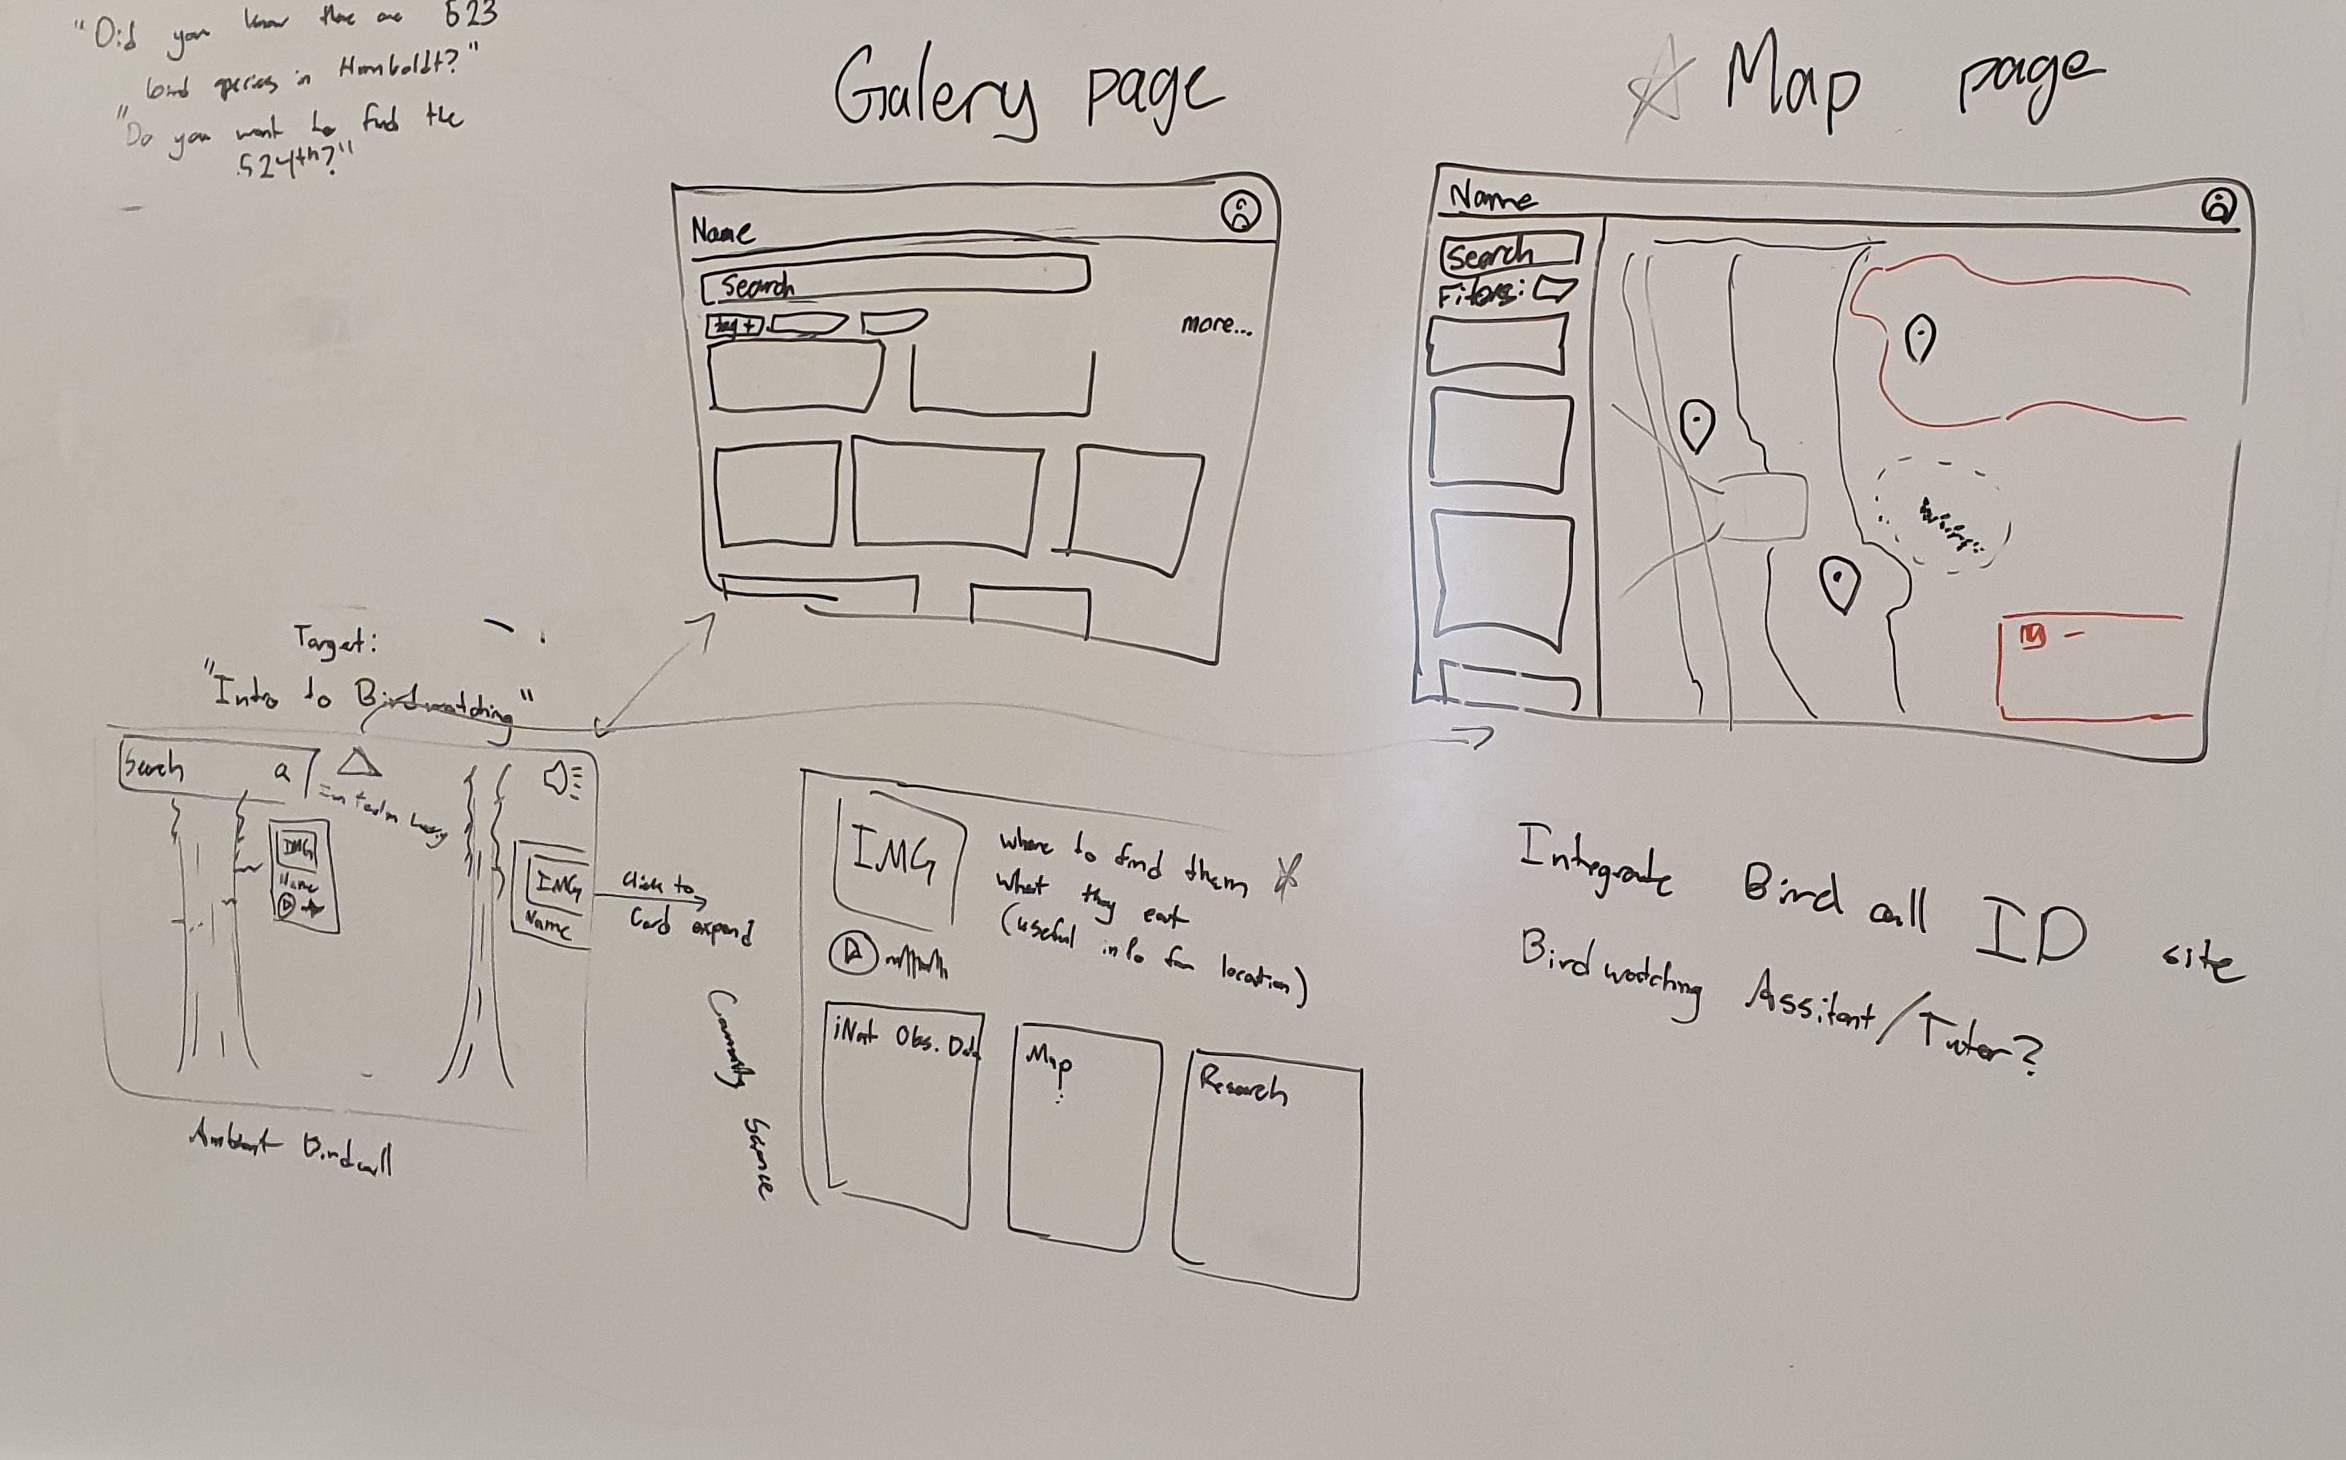 "Did you know there are 523
bird species in Humboldt?"
"Do you want to find the
524th?"
Galery page
Name
Search
tag +
more...
Map page
Name
Search
Filters:
Target:
"Intro to Birdwatching"
Search
IMG
Name
IMG
Name
Ambient Birdcall
Click to
Card expand
Community Science
IMG
where to find them
what they eat
(useful info for location)
iNat Obs. Data
Map
Research
Integrate Bird call ID site
Birdwatching Assitant/Tutor?